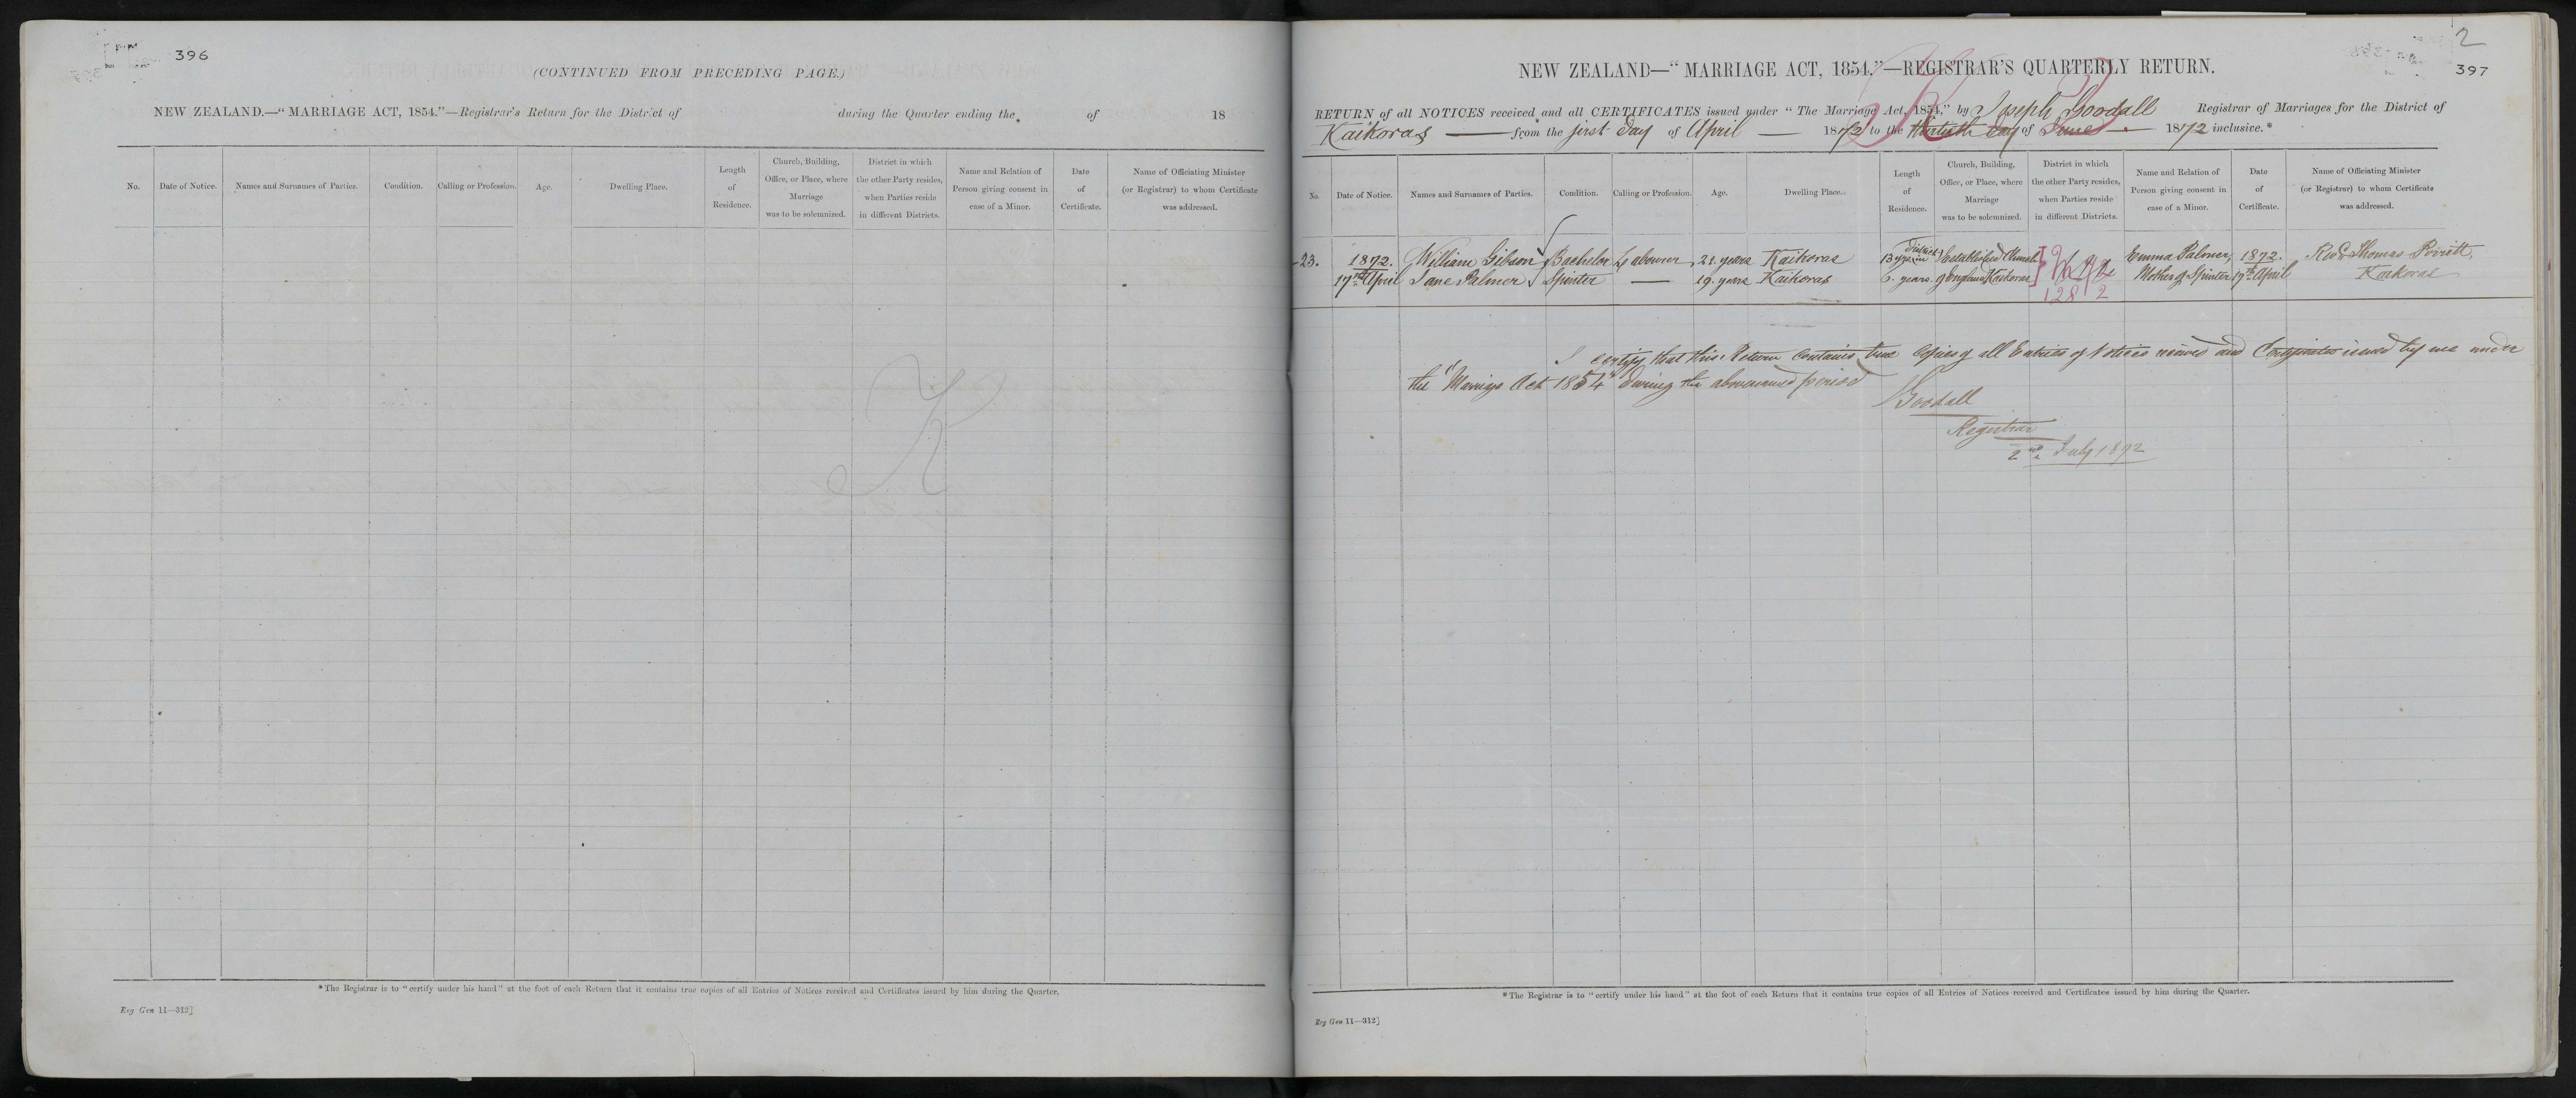 396
(CONTINUED FROM PRECEDING PAGE.)
NEW ZEALAND.—"MARRIAGE ACT, 1854."—Registrar's Return for the District of during the Quarter ending the of 18
No. Date of Notice. Names and Surnames of Parties. Condition. Calling or Profession. Age. Dwelling Place. Length of Residence. Church, Building, Office, or Place, where Marriage was to be solemnized. District in which the other Party resides, when Parties reside in different Districts. Name and Relation of Person giving consent in case of a Minor. Date of Certificate. Name of Officiating Minister (or Registrar) to whom Certificate was addressed.
*The Registrar is to "certify under his hand" at the foot of each Return that it contains true copies of all Entries of Notices received and Certificates issued by him during the Quarter.
Reg Gen 11—312]
2
397
NEW ZEALAND—"MARRIAGE ACT, 1854."—REGISTRAR'S QUARTERLY RETURN.
RETURN of all NOTICES received and all CERTIFICATES issued under "The Marriage Act, 1854," by Joseph Goodall Registrar of Marriages for the District of
Kaikoras from the first day of April 1872 to the thirtieth day of June 1872 inclusive.*
No. Date of Notice. Names and Surnames of Parties. Condition. Calling or Profession. Age. Dwelling Place. Length of Residence. Church, Building, Office, or Place, where Marriage was to be solemnized. District in which the other Party resides, when Parties reside in different Districts. Name and Relation of Person giving consent in case of a Minor. Date of Certificate. Name of Officiating Minister (or Registrar) to whom Certificate was addressed.
23. 1872. William Gibson Bachelor Labourer 21 years Kaikoras 13 yrs in district Established Church Emma Palmer, 1872. Revd Thomas Porritt,
17th April Jane Palmer Spinster — 19. years Kaikoras 6. years of England Kaikoras Mother of Spinster 17th April Kaikoras
1282
I certify that this Return contains true Copies of all Entries of Notices received and Certificates issued by me under
the "Marriage Act 1854" during the abovenamed period
J Goodall
Registrar
2nd July 1872
*The Registrar is to "certify under his hand" at the foot of each Return that it contains true copies of all Entries of Notices received and Certificates issued by him during the Quarter.
Reg Gen 11—312]